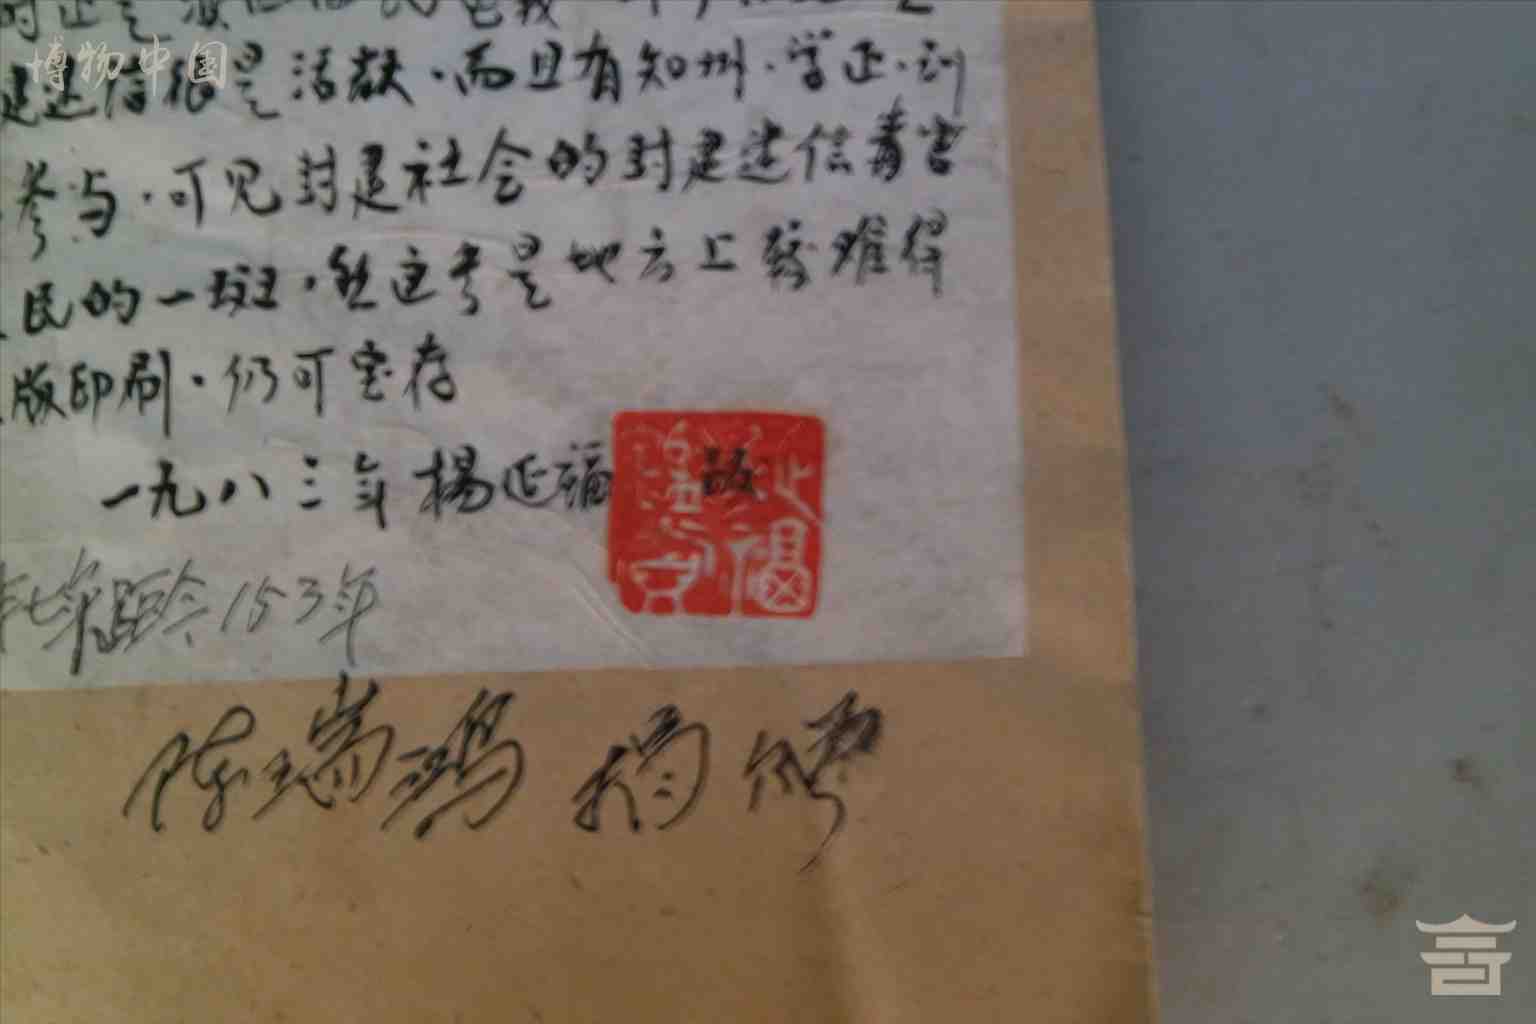 博物中国
建迷信很是活跃．而且有知州．学正．训
参与．可见封建社会的封建迷信毒害
民的一斑．但这书是地方上较难得
版印刷．仍可宝存
一九八三年楊延福
距今153年
陈瑞鸿 捐赠